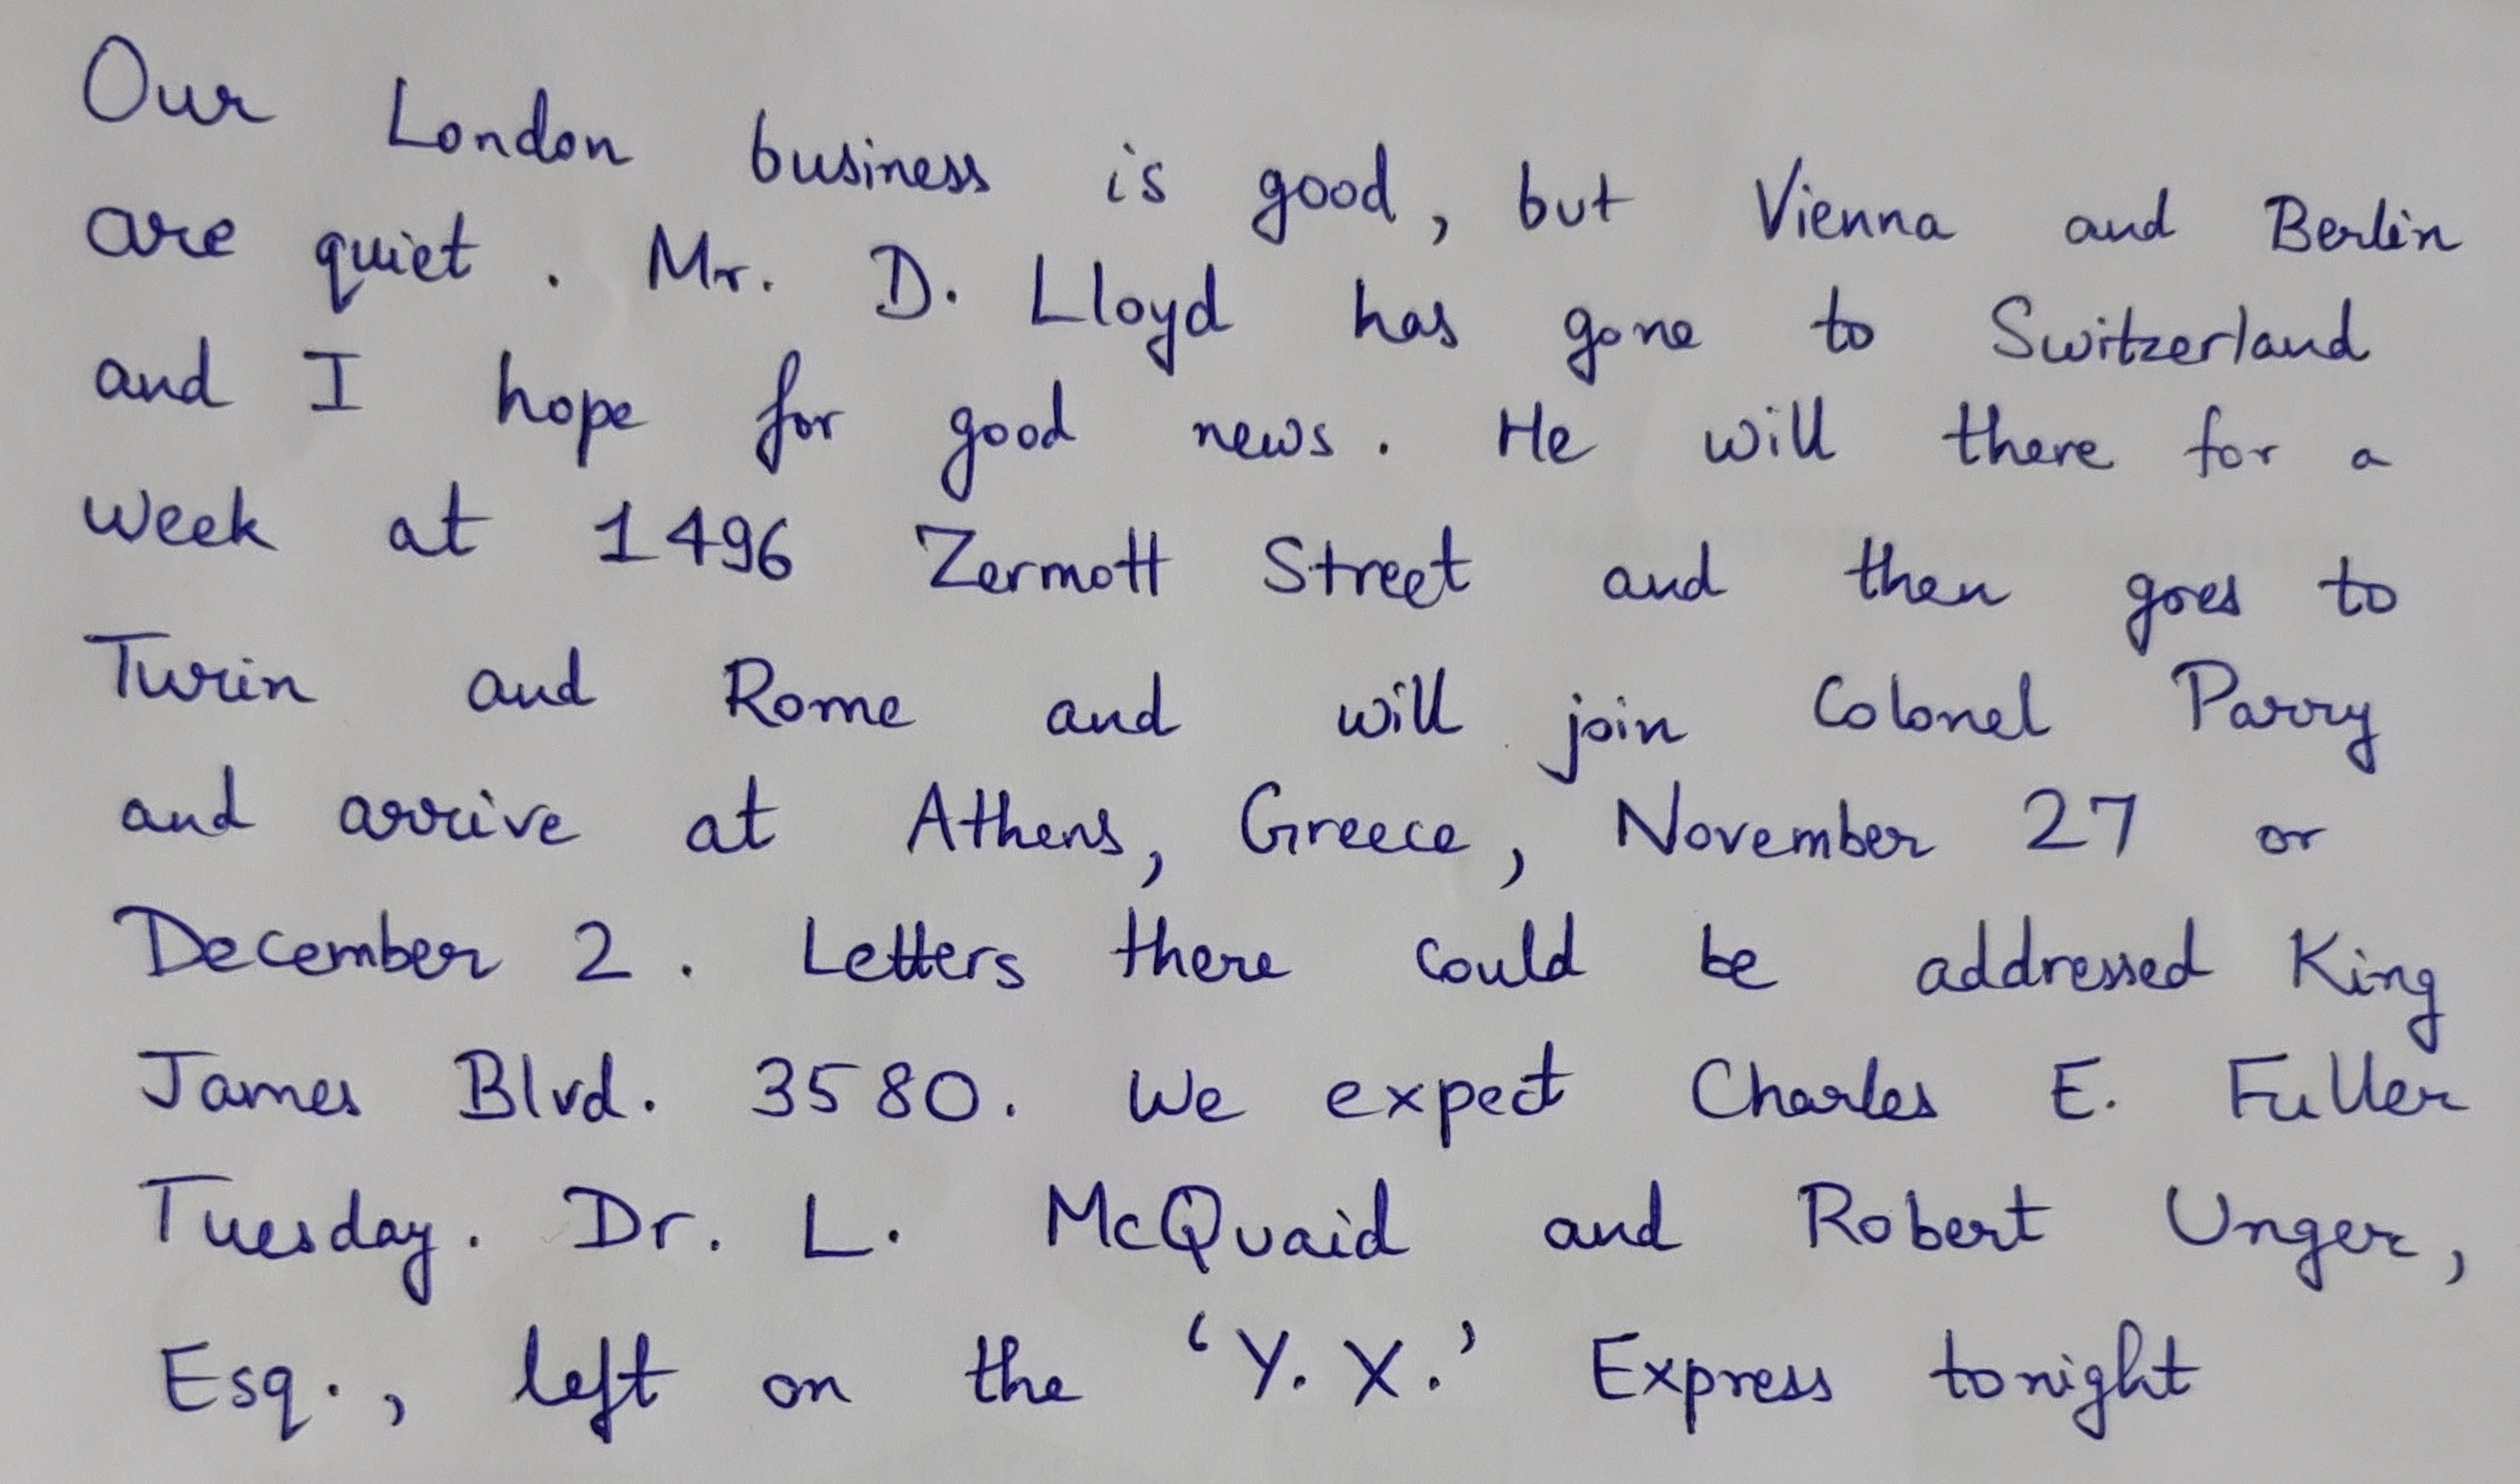 Our London business is good, but Vienna and Berlin
are quiet. Mr. D. Lloyd has gone to Switzerland
and I hope for good news. He will there for a
week at 1496 Zermott Street and then goes to
Turin and Rome and will join Colonel Parry
and arrive at Athens, Greece, November 27 or
December 2. Letters there could be addressed King
James Blvd. 3580. We expect Charles E. Fuller
Tuesday. Dr. L. McQuaid and Robert Unger,
Esq., left on the 'Y. X.' Express tonight